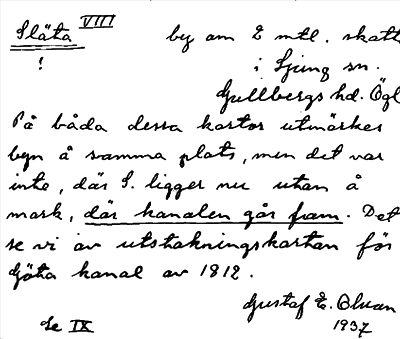 Släta VIII by om 2 mtl. skatt
! i Ljung sn.
Gullbergs hd. Ögl
På båda dessa kartor utmärkes
byn å samma plats, men det var
inte, där S. ligger nu utan å
mark, där kanalen går fram. Det
se vi av utstakningskartan för
Göta kanal av 1812.
Gustaf E.
Se IX 1937